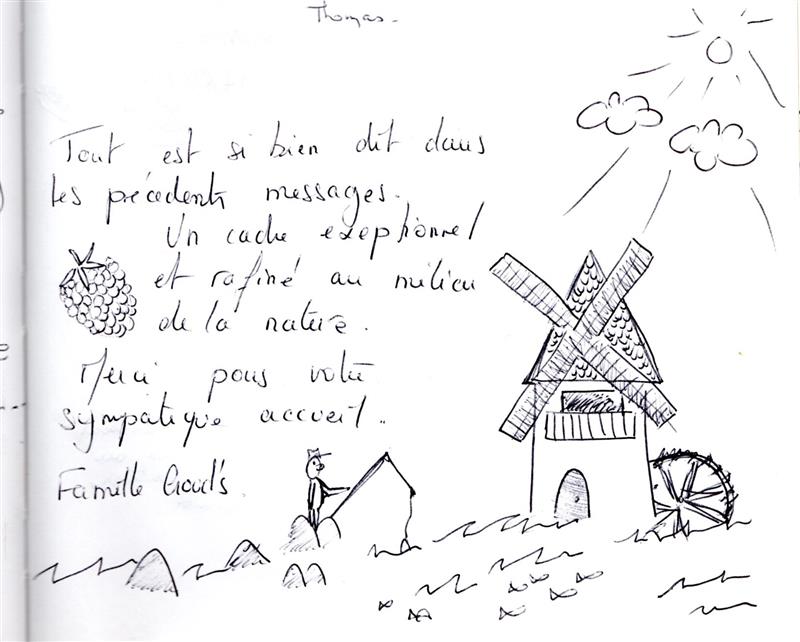 Thomas.
Tout est si bien dit dans
les précédents messages.
Un cadre exeptionnel
et rafiné au milieu
de la nature.
Merci pour votre
sympatique accueil..
Famille